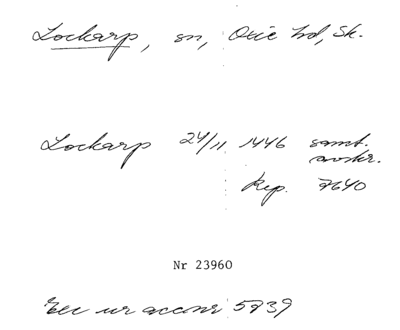 Lockarp, sn, Oxie hd, Sk.
Lockarp 24/11 1446 samt.
avskr.
Rep. 7640
Nr 23960
ur accnr 5739